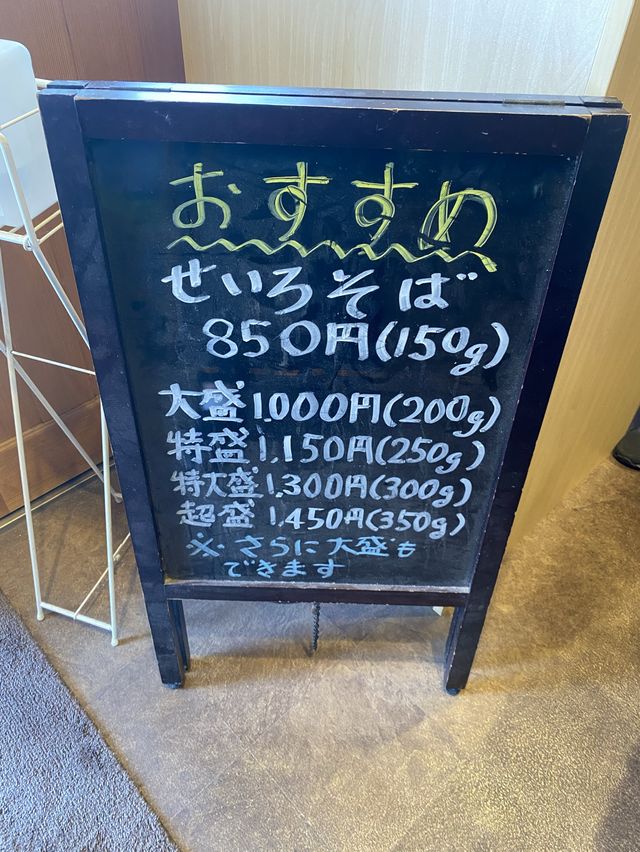 おすすめ
せいろそば
850円(150g)
大盛 1,000円(200g)
特盛 1,150円(250g)
特大盛 1,300円(300g)
超盛 1,450円(350g)
※さらに大盛も
できます